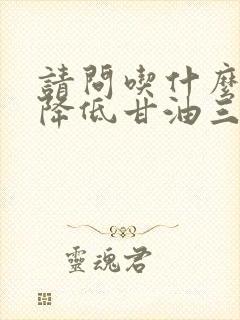 請問喫什麼
降低甘油三
靈魂君